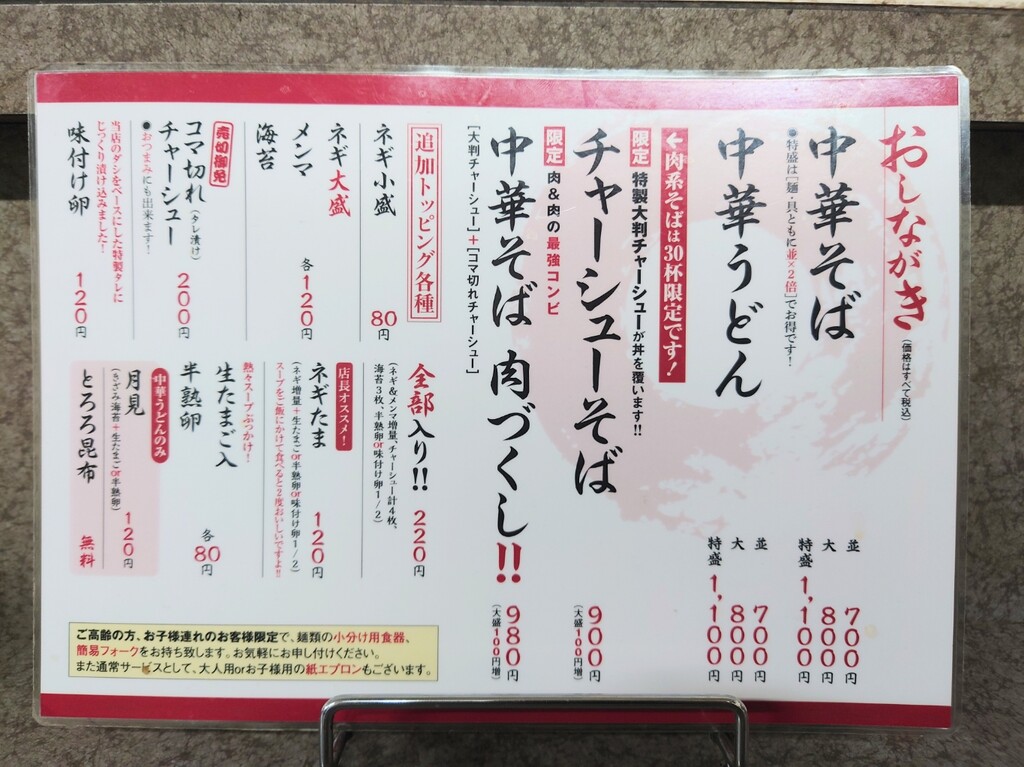 おしながき
(価格はすべて税込)
中華そば
並 700円
大 800円
特盛 1,100円
●特盛は[麺・具ともに並×2倍]でお得です!
中華うどん
並 700円
大 800円
特盛 1,100円
←肉系そばは30杯限定です!
限定 特製大判チャーシューが丼を覆います!!
チャーシューそば 900円
(大盛100円増)
限定 肉&肉の最強コンビ
中華そば 肉づくし!! 980円
(大盛100円増)
[大判チャーシュー]+[コマ切れチャーシュー]
追加トッピング各種
ネギ小盛 80円
ネギ大盛
メンマ
海苔
各120円
売切御免
コマ切れ(タレ漬け)
チャーシュー 200円
●おつまみにも出来ます!
当店のダシをベースにした特製タレに
じっくり漬け込みました!
味付け卵 120円
全部入り!! 220円
(ネギ&メンマ増量、チャーシュー計4枚、
海苔3枚、半熟卵or味付け卵1/2)
店長オススメ!
ネギたま 120円
(ネギ増量+生たまごor半熟卵or味付け卵1/2)
スープをご飯にかけて食べると2度おいしいですよ!!
熱々スープぶっかけ!
生たまご入
半熟卵
各80円
中華うどんのみ
月見 120円
(きざみ海苔+生たまごor半熟卵)
とろろ昆布 無料
ご高齢の方、お子様連れのお客様限定で、麺類の小分け用食器、
簡易フォークをお持ち致します。お気軽にお申し付けください。
また通常サービスとして、大人用orお子様用の紙エプロンもございます。